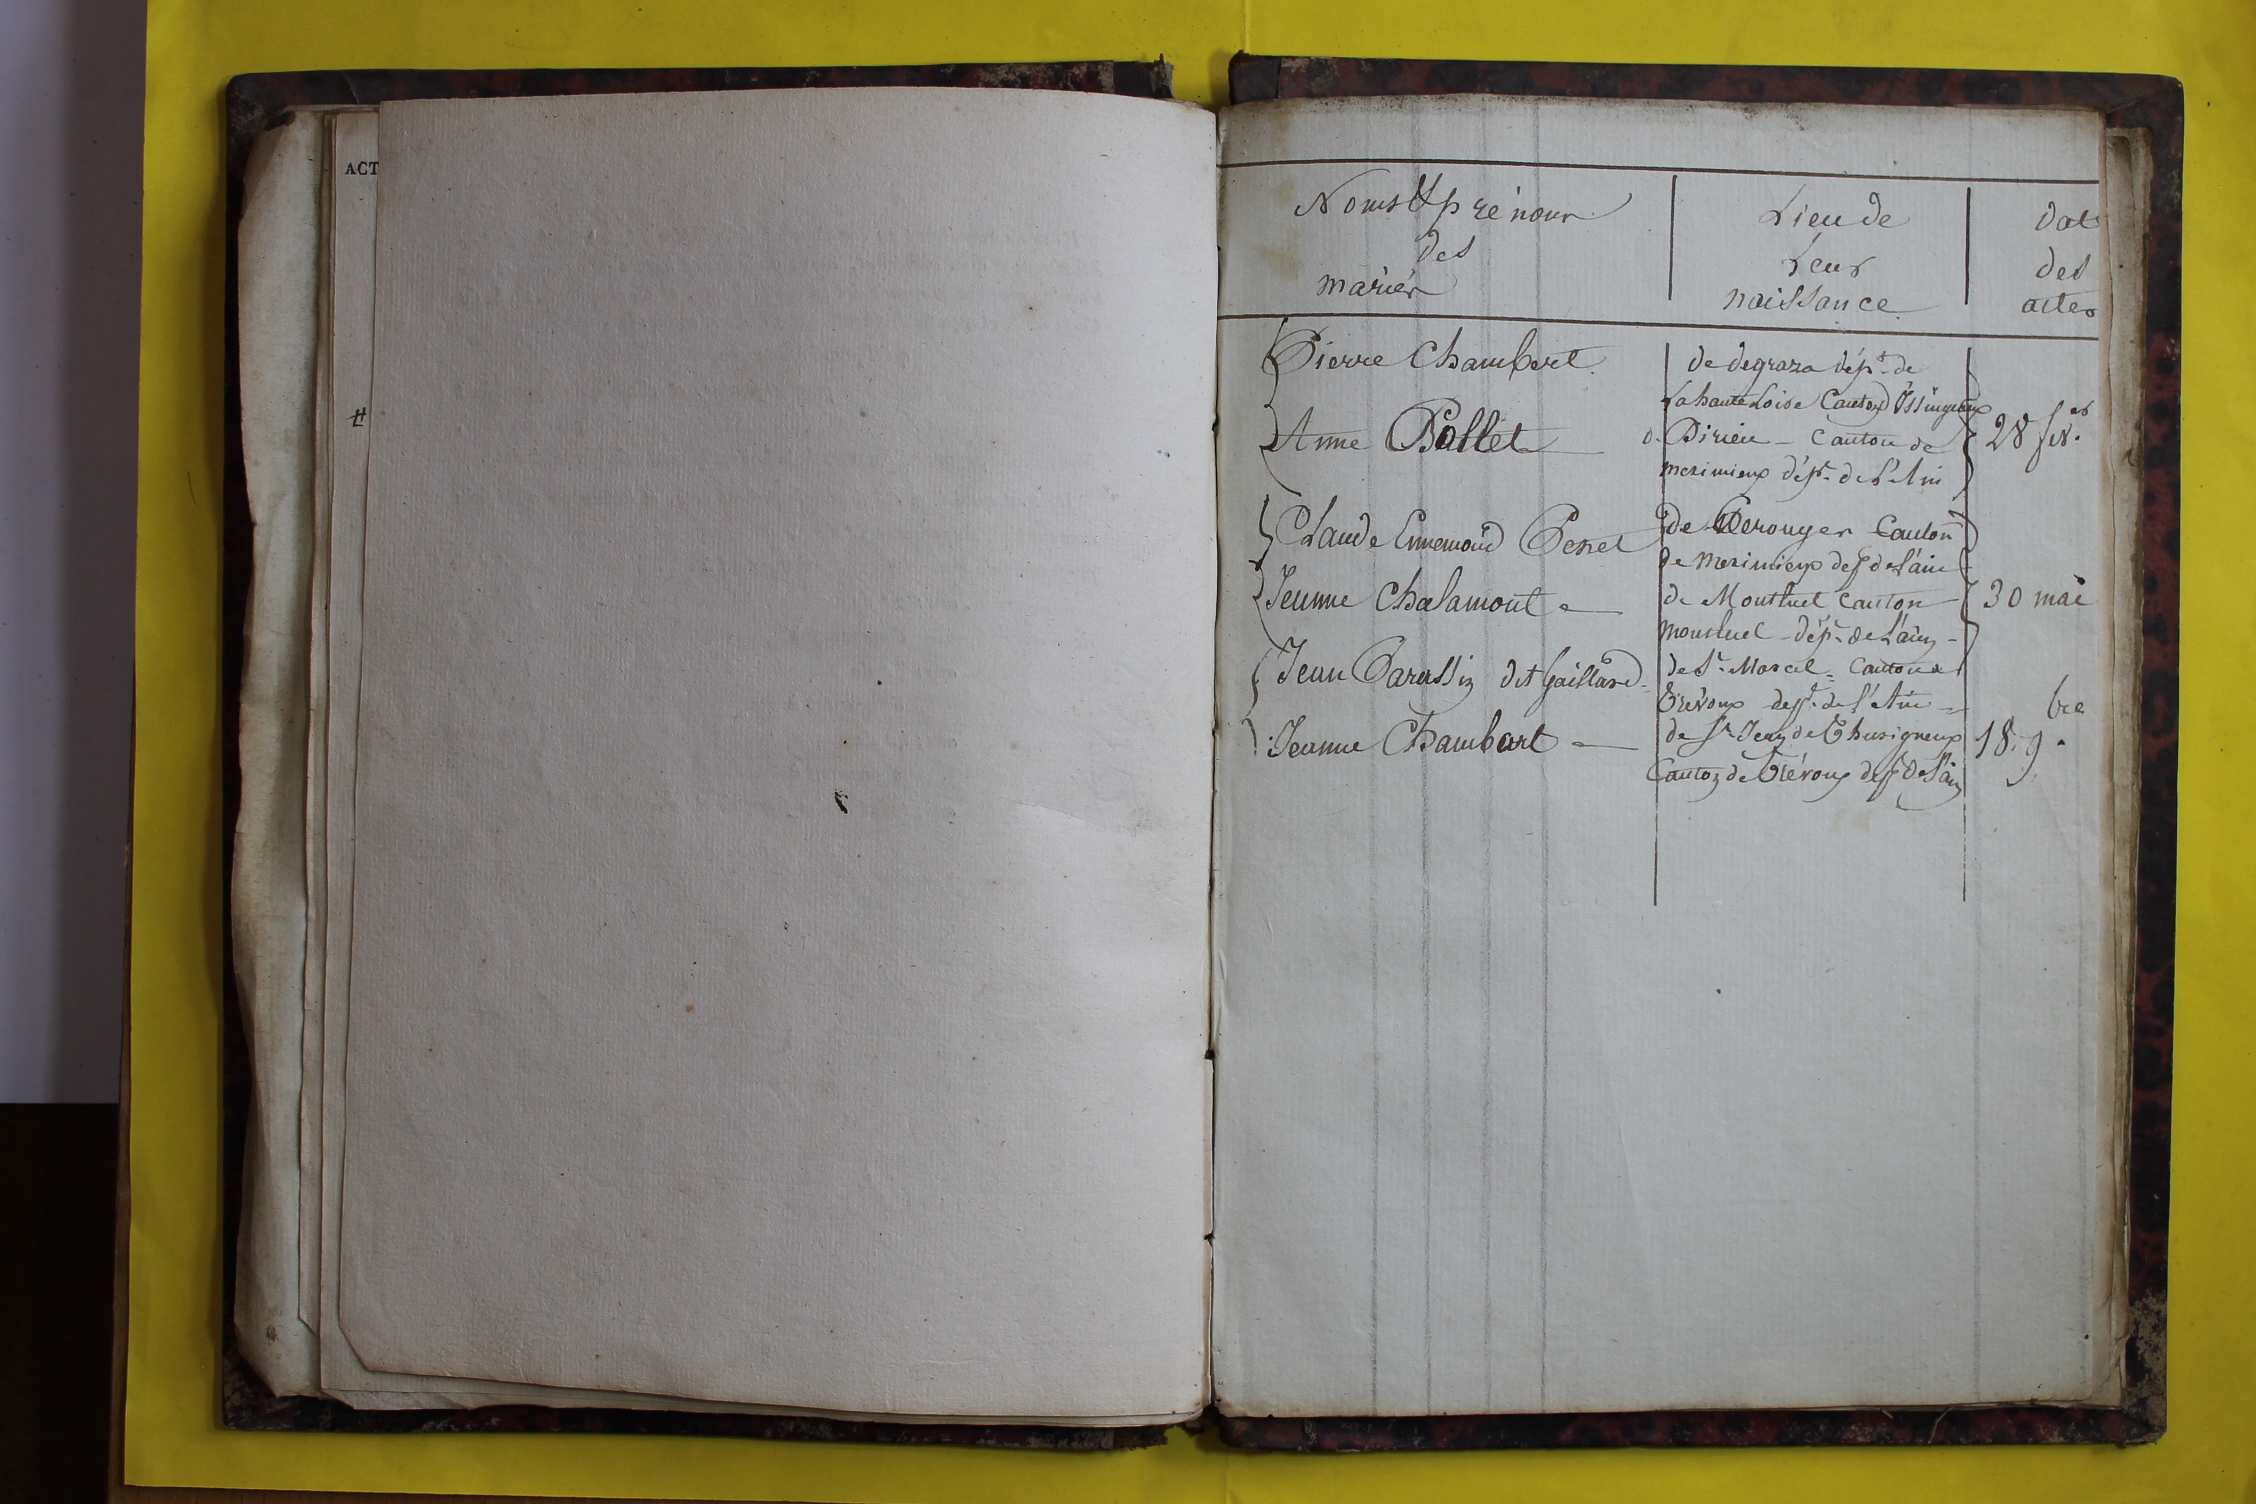 ACT
Noms & prénoms
des
mariés
Lieu de
Leur
naissance
dat
des
actes
Pierre Chambert
de degraza dépt. de
La haute Loire Canton d'Issingeaux
Anne Ballet
d. Pirieu - Canton de
meximieux dépt. de L'Ain
28
Claude Ennemond Penet
de Perouges Canton
de meximieux dept de L'ain
Jeanne Chalamont
de Montluel Canton
30 mai
montluel - dépt. de L'ain -
Jean Parussin dit Gaillard
de St. Marcel Canton de
Trévoux dept. de l'Ain
Jeanne Chambart
de St Jean de Thurigneux
18. 9.bre
Canton de Trévoux dept de l'ain